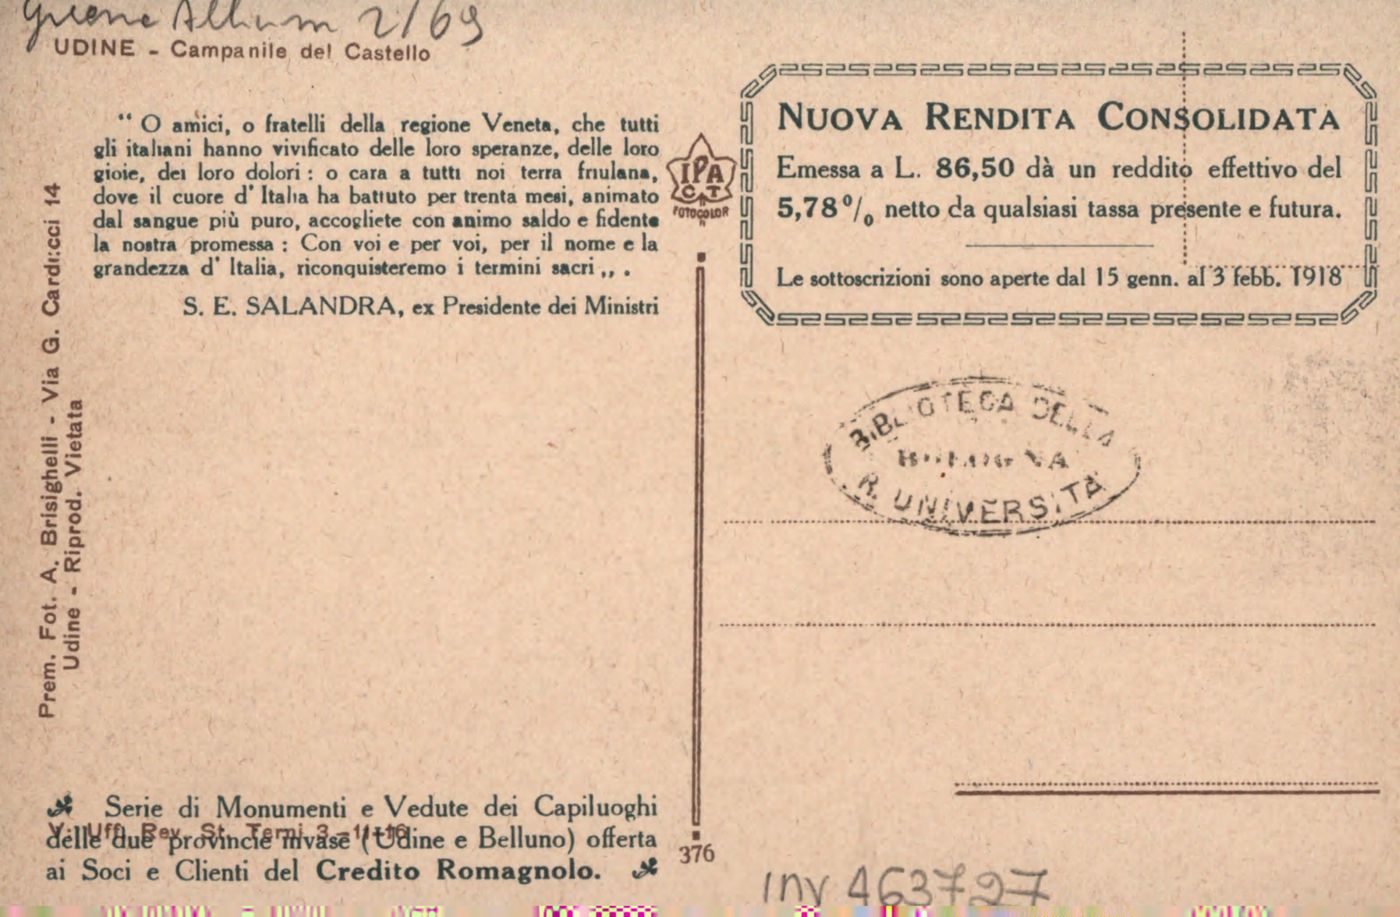 Album 2/69
UDINE - Campanile del Castello
“ O amici, o fratelli della regione Veneta, che tutti
gli italiani hanno vivificato delle loro speranze, delle loro
gioie, dei loro dolori : o cara a tutti noi terra friulana,
dove il cuore d' Italia ha battuto per trenta mesi, animato
dal sangue più puro, accogliete con animo saldo e fidente
la nostra promessa : Con voi e per voi, per il nome e la
grandezza d' Italia, riconquisteremo i termini sacri ,, .
S. E. SALANDRA, ex Presidente dei Ministri
Prem. Fot. A. Brisighelli - Via G. Carducci 14
Udine - Riprod. Vietata
Serie di Monumenti e Vedute dei Capiluoghi
delle due provincie invase (Udine e Belluno) offerta
ai Soci e Clienti del Credito Romagnolo.
V. Uff. Rev. St. Terni
IPA
CT
FOTOCOLOR
376
NUOVA RENDITA CONSOLIDATA
Emessa a L. 86,50 dà un reddito effettivo del
5,78 % netto da qualsiasi tassa presente e futura.
Le sottoscrizioni sono aperte dal 15 genn. al 3 febb. 1918
BIBLIOTECA DELLA
BOLOGNA
R. UNIVERSITÀ
INV 463727